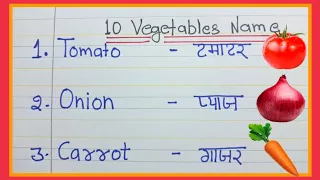 10 Vegetables Name
1. Tomato - टमाटर
2. Onion - प्याज
3. Carrot - गाजर